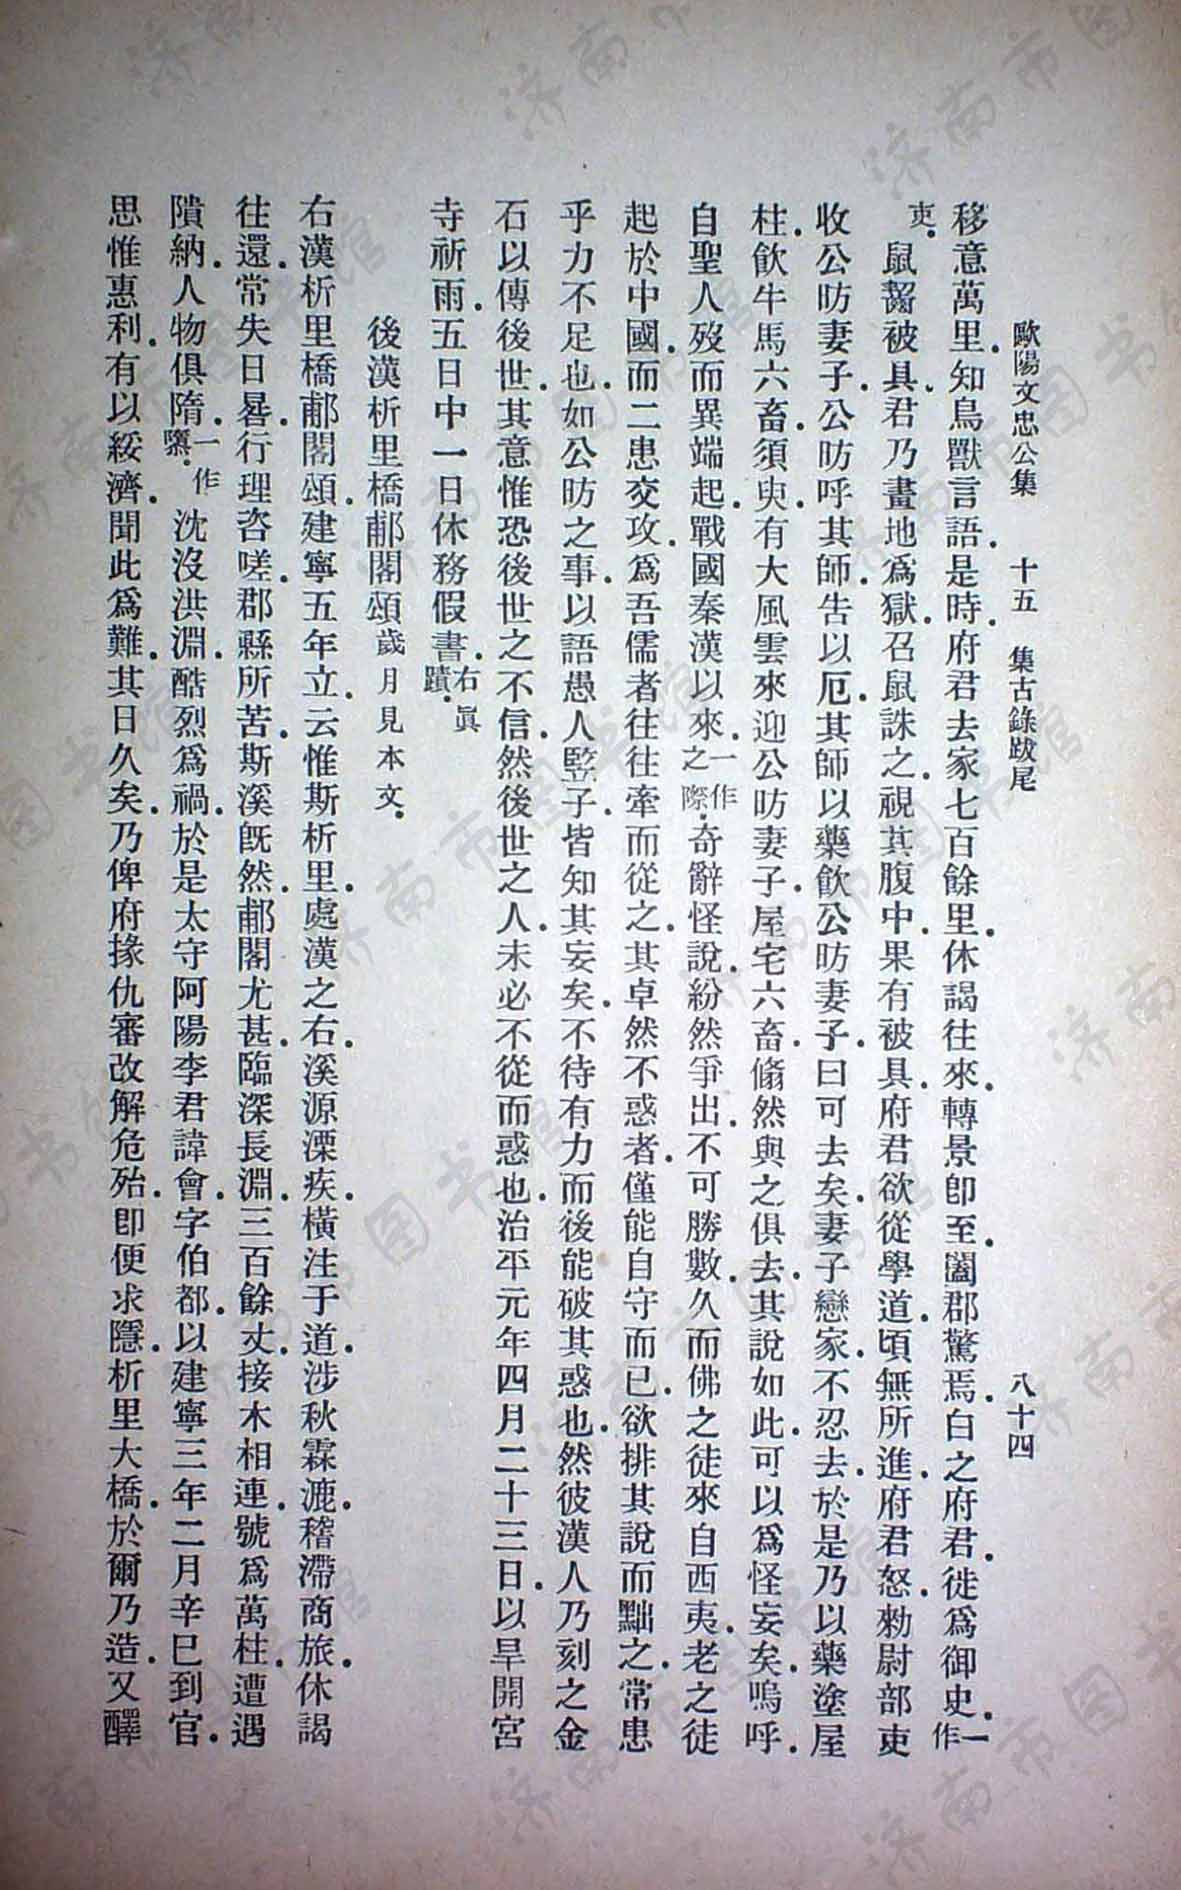 歐陽文忠公集　十五　集古錄跋尾　八十四
移意萬里.知鳥獸言語.是時.府君去家七百餘里.休謁往來.轉景卽至.闔郡驚焉.白之府君.徙爲御史.一作
吏.鼠齧被具.君乃畫地爲獄.召鼠誅之.視其腹中.果有被具.府君欲從學道.頃無所進.府君怒.勑尉部吏
收公昉妻子.公昉呼其師.告以厄.其師以藥飮公昉妻子.曰可去矣.妻子戀家.不忍去.於是乃以藥塗屋
柱.飮牛馬六畜.須臾.有大風雲來迎公昉妻子.屋宅六畜.翛然與之俱去.其說如此.可以爲怪妄矣.嗚呼.
自聖人歿而異端起.戰國秦漢以來.一作之際.奇辭怪說.紛然爭出.不可勝數.久而佛之徒來自西夷.老之徒
起於中國.而二患交攻.爲吾儒者往往牽而從之.其卓然不惑者.僅能自守而已.欲排其說而黜之.常患
乎力不足也.如公昉之事.以語愚人豎子.皆知其妄矣.不待有力而後能破其惑也.然彼漢人乃刻之金
石以傳後世.其意惟恐後世之不信.然後世之人.未必不從而惑也.治平元年四月二十三日.以旱開宮
寺祈雨.五日中一日休務假書.右眞蹟.
後漢析里橋郙閣頌歲月見本文.
右漢析里橋郙閣頌.建寧五年立.云惟斯析里.處漢之右.溪源漂疾.橫注于道.涉秋霖漉.稽滯商旅.休謁
往還.常失日晷.行理咨嗟.郡縣所苦.斯溪旣然.郙閣尤甚.臨深長淵.三百餘丈.接木相連.號爲萬柱.遭遇
隤納.人物俱隋.一作隳.沈沒洪淵.酷烈爲禍.於是太守阿陽李君諱會.字伯都.以建寧三年二月辛巳到官.
思惟惠利.有以綏濟.聞此爲難.其日久矣.乃俾府掾仇審改解危殆.卽便求隱.析里大橋.於爾乃造.又醳